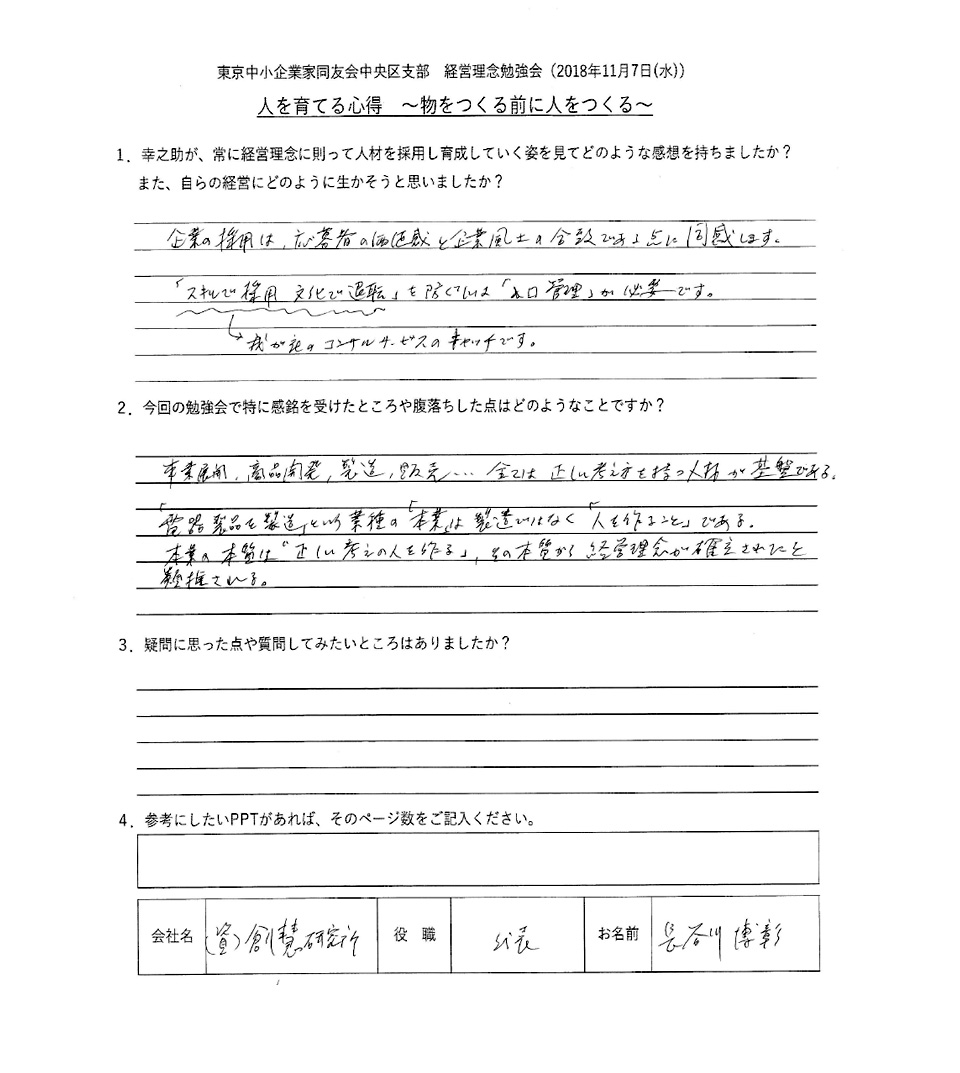 東京中小企業家同友会中央区支部　経営理念勉強会（2018年11月7日(水)）
人を育てる心得　～物をつくる前に人をつくる～
1．幸之助が、常に経営理念に則って人材を採用し育成していく姿を見てどのような感想を持ちましたか？
また、自らの経営にどのように生かそうと思いましたか？
企業の採用は、応募者の価値感と企業風土の合致である点に同感します。
「スキルで採用 文化で退転」を防ぐには「入口管理」が必要です。
我が社のコンサルサービスのキャッチです。
2．今回の勉強会で特に感銘を受けたところや腹落ちした点はどのようなことですか？
事業展開、商品開発、製造、販売… 全ては正しい考え方を持つ人材が基盤である。
「電器製品を製造」という業種の「本業」は製造ではなく「人を作ること」である。
本業の本質は“正しい考えの人を作る」、その本質から経営理念が確立されたと
類推される。
3．疑問に思った点や質問してみたいところはありましたか？
4．参考にしたいPPTがあれば、そのページ数をご記入ください。
会社名 (資)創慧研究所 役職 代表 お名前 長谷川 博彰